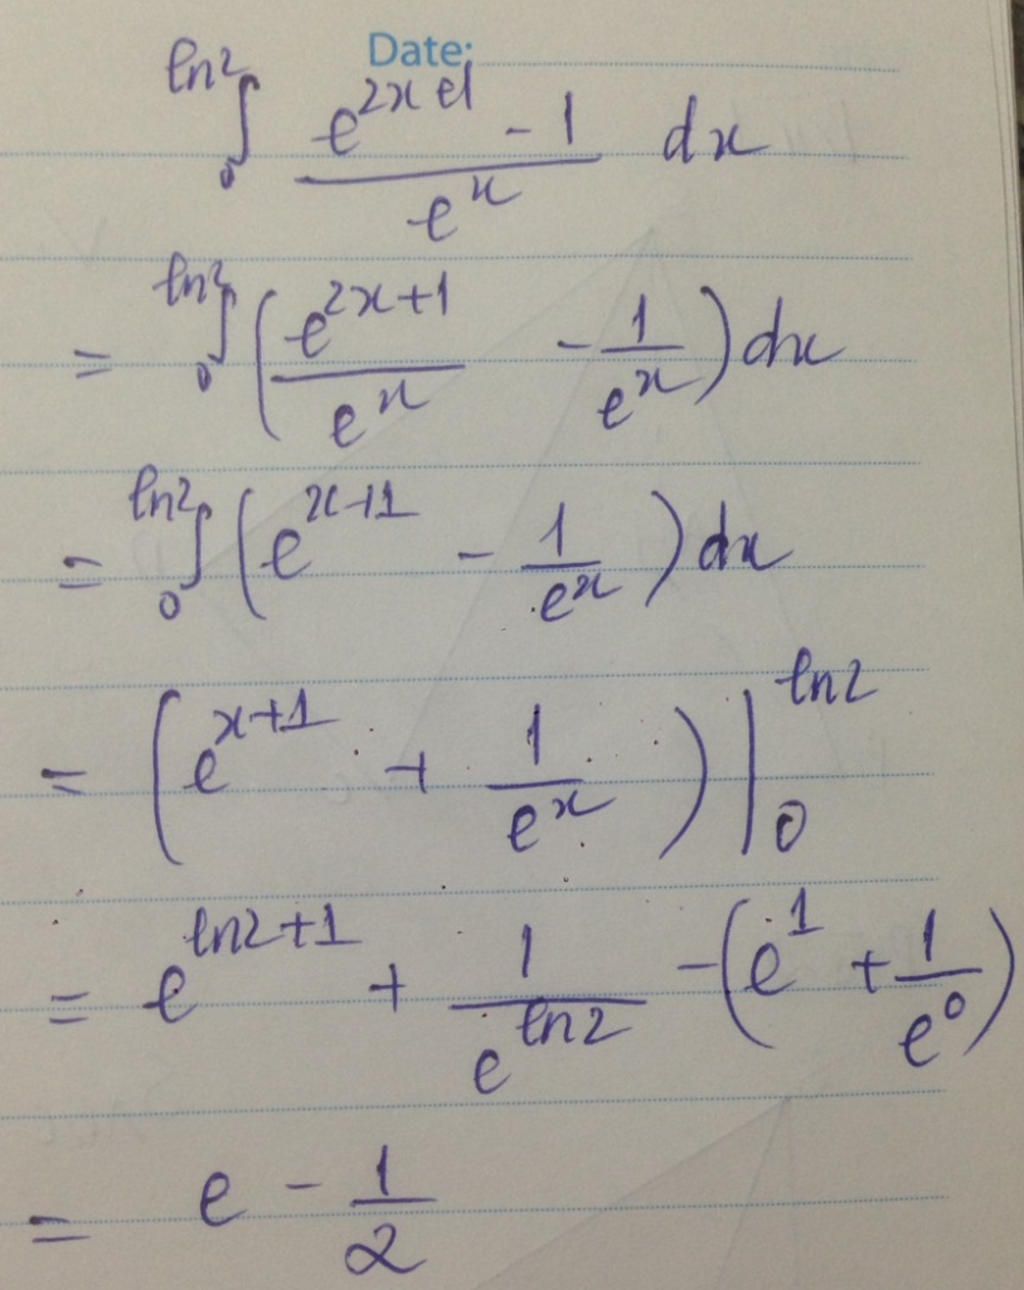 Date:
∫₀^{ln2} (e^{2x+1} - 1)/(e^x) dx
= ∫₀^{ln2} ( e^{2x+1}/e^x - 1/e^x ) dx
= ∫₀^{ln2} ( e^{x+1} - 1/e^x ) dx
= ( e^{x+1} + 1/e^x ) |₀^{ln2}
= e^{ln2+1} + 1/e^{ln2} - ( e^1 + 1/e^0 )
= e - 1/2